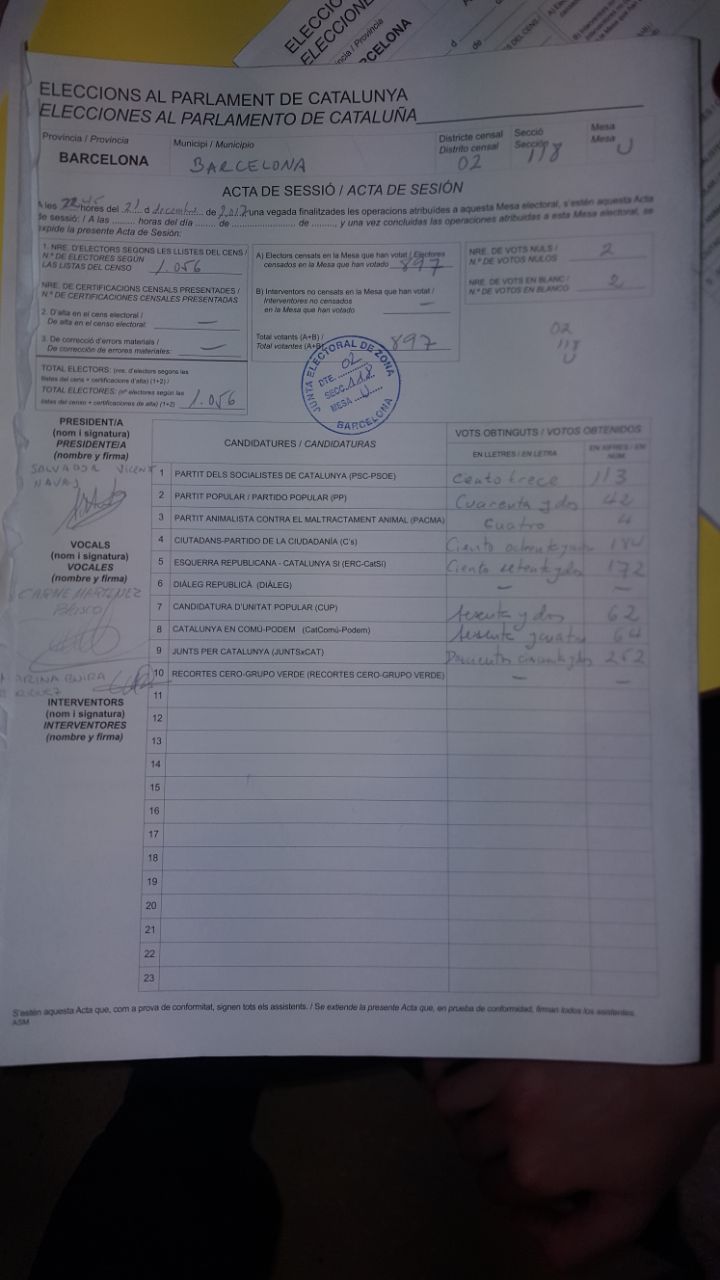 ELECCIONS AL PARLAMENT DE CATALUNYA
ELECCIONES AL PARLAMENTO DE CATALUÑA
Província / Provincia
BARCELONA
Municipi / Municipio
BARCELONA
Districte censal
Distrito censal
02
Secció
Sección
118
Mesa
Mesa
U
ACTA DE SESSIÓ / ACTA DE SESIÓN
A les 22:45 hores del 21 d decembre de 2.017 una vegada finalitzades les operacions atribuïdes a aquesta Mesa electoral, s'estén aquesta Acta
de sessió: / A las ........ horas del día ....... de ........................ de ........, y una vez concluidas las operaciones atribuidas a esta Mesa electoral, se
expide la presente Acta de Sesión:
1. NRE. D'ELECTORS SEGONS LES LLISTES DEL CENS /
N.º DE ELECTORES SEGÚN
LAS LISTAS DEL CENSO 1.056
NRE. DE CERTIFICACIONS CENSALS PRESENTADES /
N.º DE CERTIFICACIONES CENSALES PRESENTADAS
2. D'alta en el cens electoral: /
De alta en el censo electoral: —
3. De correcció d'errors materials /
De corrección de errores materiales: —
TOTAL ELECTORS: (nre. d'electors segons les
llistes del cens + certificacions d'alta) (1+2) /
TOTAL ELECTORES: (nº electores según las
listas del censo + certificaciones de alta) (1+2) 1.056
A) Electors censats en la Mesa que han votat / Electores
censados en la Mesa que han votado 897
B) Interventors no censats en la Mesa que han votat /
Interventores no censados
en la Mesa que han votado —
Total votants (A+B) /
Total votantes (A+B) 897
NRE. DE VOTS NULS /
N.º DE VOTOS NULOS 2
NRE. DE VOTS EN BLANC /
N.º DE VOTOS EN BLANCO 2
02
118
U
JUNTA ELECTORAL DE ZONA
DTE. 02
SECC. 118
MESA U
BARCELONA
PRESIDENT/A
(nom i signatura)
PRESIDENTE/A
(nombre y firma)
SALVADOR VICENT
NAVAS
VOCALS
(nom i signatura)
VOCALES
(nombre y firma)
CARME MARTINEZ
INTERVENTORS
(nom i signatura)
INTERVENTORES
(nombre y firma)
CANDIDATURES / CANDIDATURAS
VOTS OBTINGUTS / VOTOS OBTENIDOS
EN LLETRES / EN LETRA
EN XIFRES / EN NÚM.
1 PARTIT DELS SOCIALISTES DE CATALUNYA (PSC-PSOE) Ciento trece 113
2 PARTIT POPULAR / PARTIDO POPULAR (PP) Cuarenta y dos 42
3 PARTIT ANIMALISTA CONTRA EL MALTRACTAMENT ANIMAL (PACMA) Cuatro 4
4 CIUTADANS-PARTIDO DE LA CIUDADANÍA (C's) Ciento ochenta y cuatro 184
5 ESQUERRA REPUBLICANA - CATALUNYA SÍ (ERC-CatSí) Ciento setenta y dos 172
6 DIÀLEG REPUBLICÀ (DIÀLEG) — —
7 CANDIDATURA D'UNITAT POPULAR (CUP) Sesenta y dos 62
8 CATALUNYA EN COMÚ-PODEM (CatComú-Podem) Sesenta y cuatro 64
9 JUNTS PER CATALUNYA (JUNTSxCAT) Doscientos cincuenta y dos 252
10 RECORTES CERO-GRUPO VERDE (RECORTES CERO-GRUPO VERDE) — —
11
12
13
14
15
16
17
18
19
20
21
22
23
S'estén aquesta Acta que, com a prova de conformitat, signen tots els assistents. / Se extiende la presente Acta que, en prueba de conformidad, firman todos los asistentes.
ASM